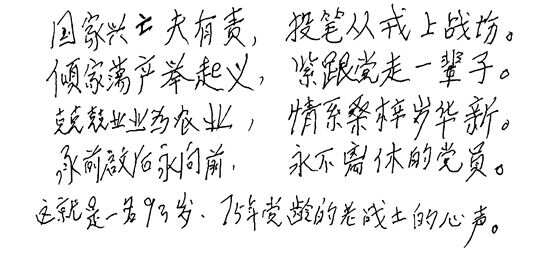 国家兴亡夫有责，投笔从戎上战场。
倾家荡产举起义，紧跟党走一辈子。
兢兢业业为农业，情系桑梓岁华新。
承前启后永向前，永不离休的党员。
这就是一名93岁、75年党龄的老战士的心声。